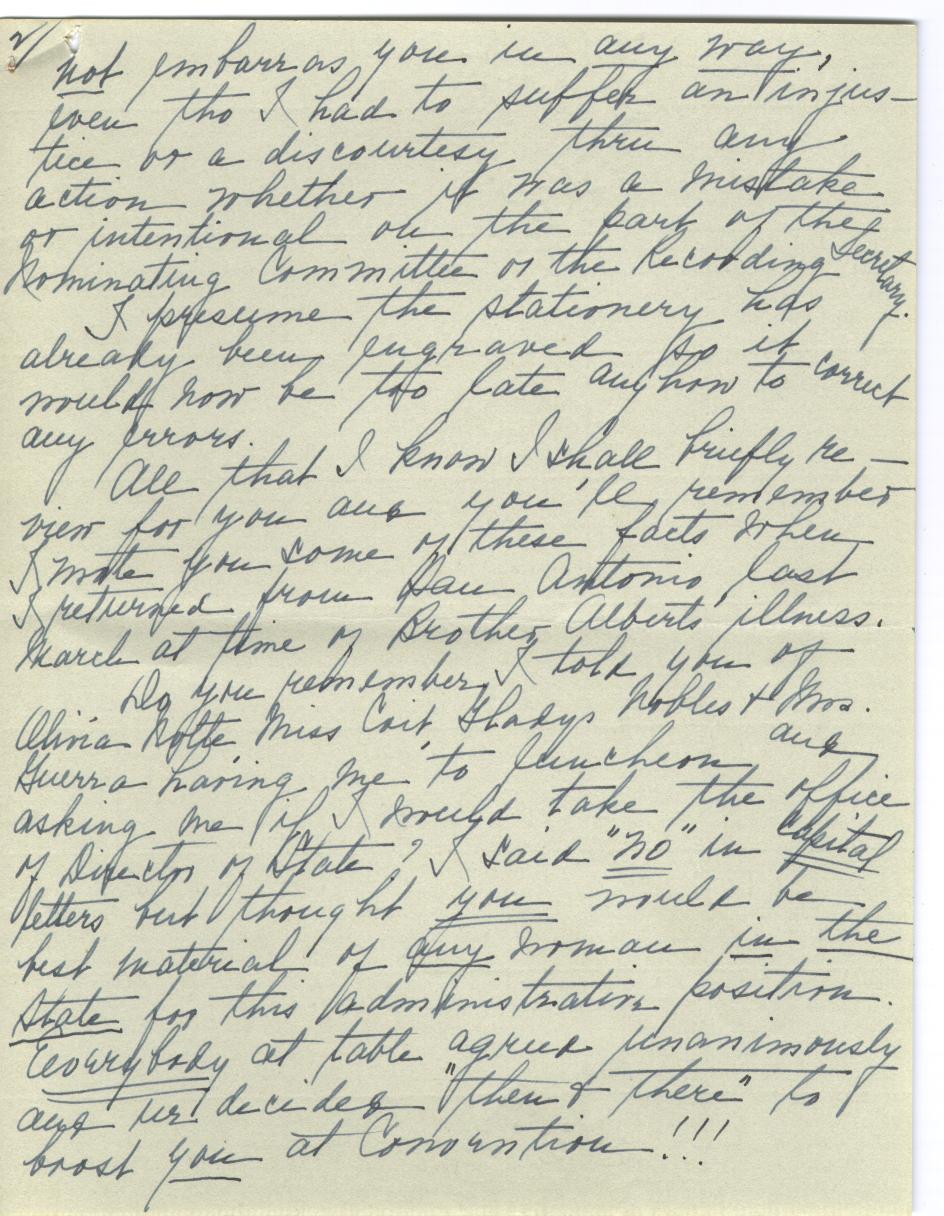 2/
not embarrass you in any way,
even tho I had to suffer an injus-
tice or a discourtesy thru any
action whether it was a mistake
or intentional on the part of the
Nominating Committee or the Recording Secretary.
I presume the stationery has
already been engraved so it
would now be too late anyhow to correct
any errors.
All that I know I shall briefly re-
view for you and you'll remember
I wrote you some of these facts when
I returned from San Antonio last
March at time of Brother Alberts illness.
Do you remember, I told you of
Olivia Nolte, Miss Coit, Gladys Nobles & Mrs.
Guerra having me to luncheon and
asking me if I would take the office
of Director of State? I said "No" in capital
letters but thought you would be
best material of any woman in the
State for this administrative position.
Everybody at table agreed unanimously
and we decided "then & there" to
boost you at Convention!!!